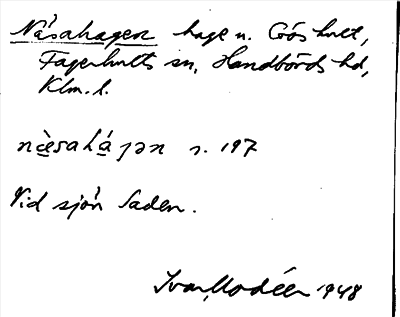 Näsahagen hage n. Cröshult,
Fagerhults sn, Handbörds hd,
Klm. l.
næ̀sahá̱gən s. 197
Vid sjön Saden.
Ivar Modéer 1948